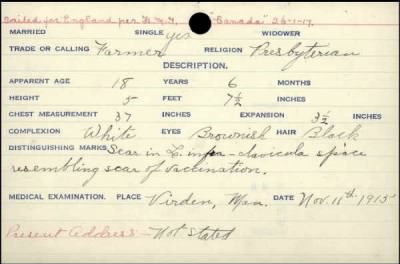 Sailed for England per H.M.T. "Canada" 26-1-17.
MARRIED SINGLE yes WIDOWER
TRADE OR CALLING Farmer RELIGION Presbyterian
DESCRIPTION.
APPARENT AGE 18 YEARS 6 MONTHS
HEIGHT 5 FEET 7½ INCHES
CHEST MEASUREMENT 37 INCHES EXPANSION 3½ INCHES
COMPLEXION White EYES Brownish HAIR Black
DISTINGUISHING MARKS Scar in L. infra-clavicula space
resembling scar of vaccination.
MEDICAL EXAMINATION. PLACE Virden, Man. DATE Nov. 11th 1915
Present Address - Not Stated